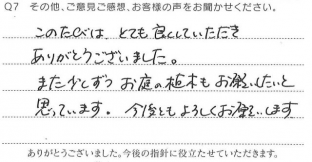 Q7 その他、ご意見ご感想、お客様の声をお聞かせください。
このたびは、とても良くしていただき
ありがとうございました。
また少しずつ お庭の植木も お願いしたいと
思っています。 今後ともよろしくお願いします
ありがとうございました。今後の指針に役立たせていただきます。